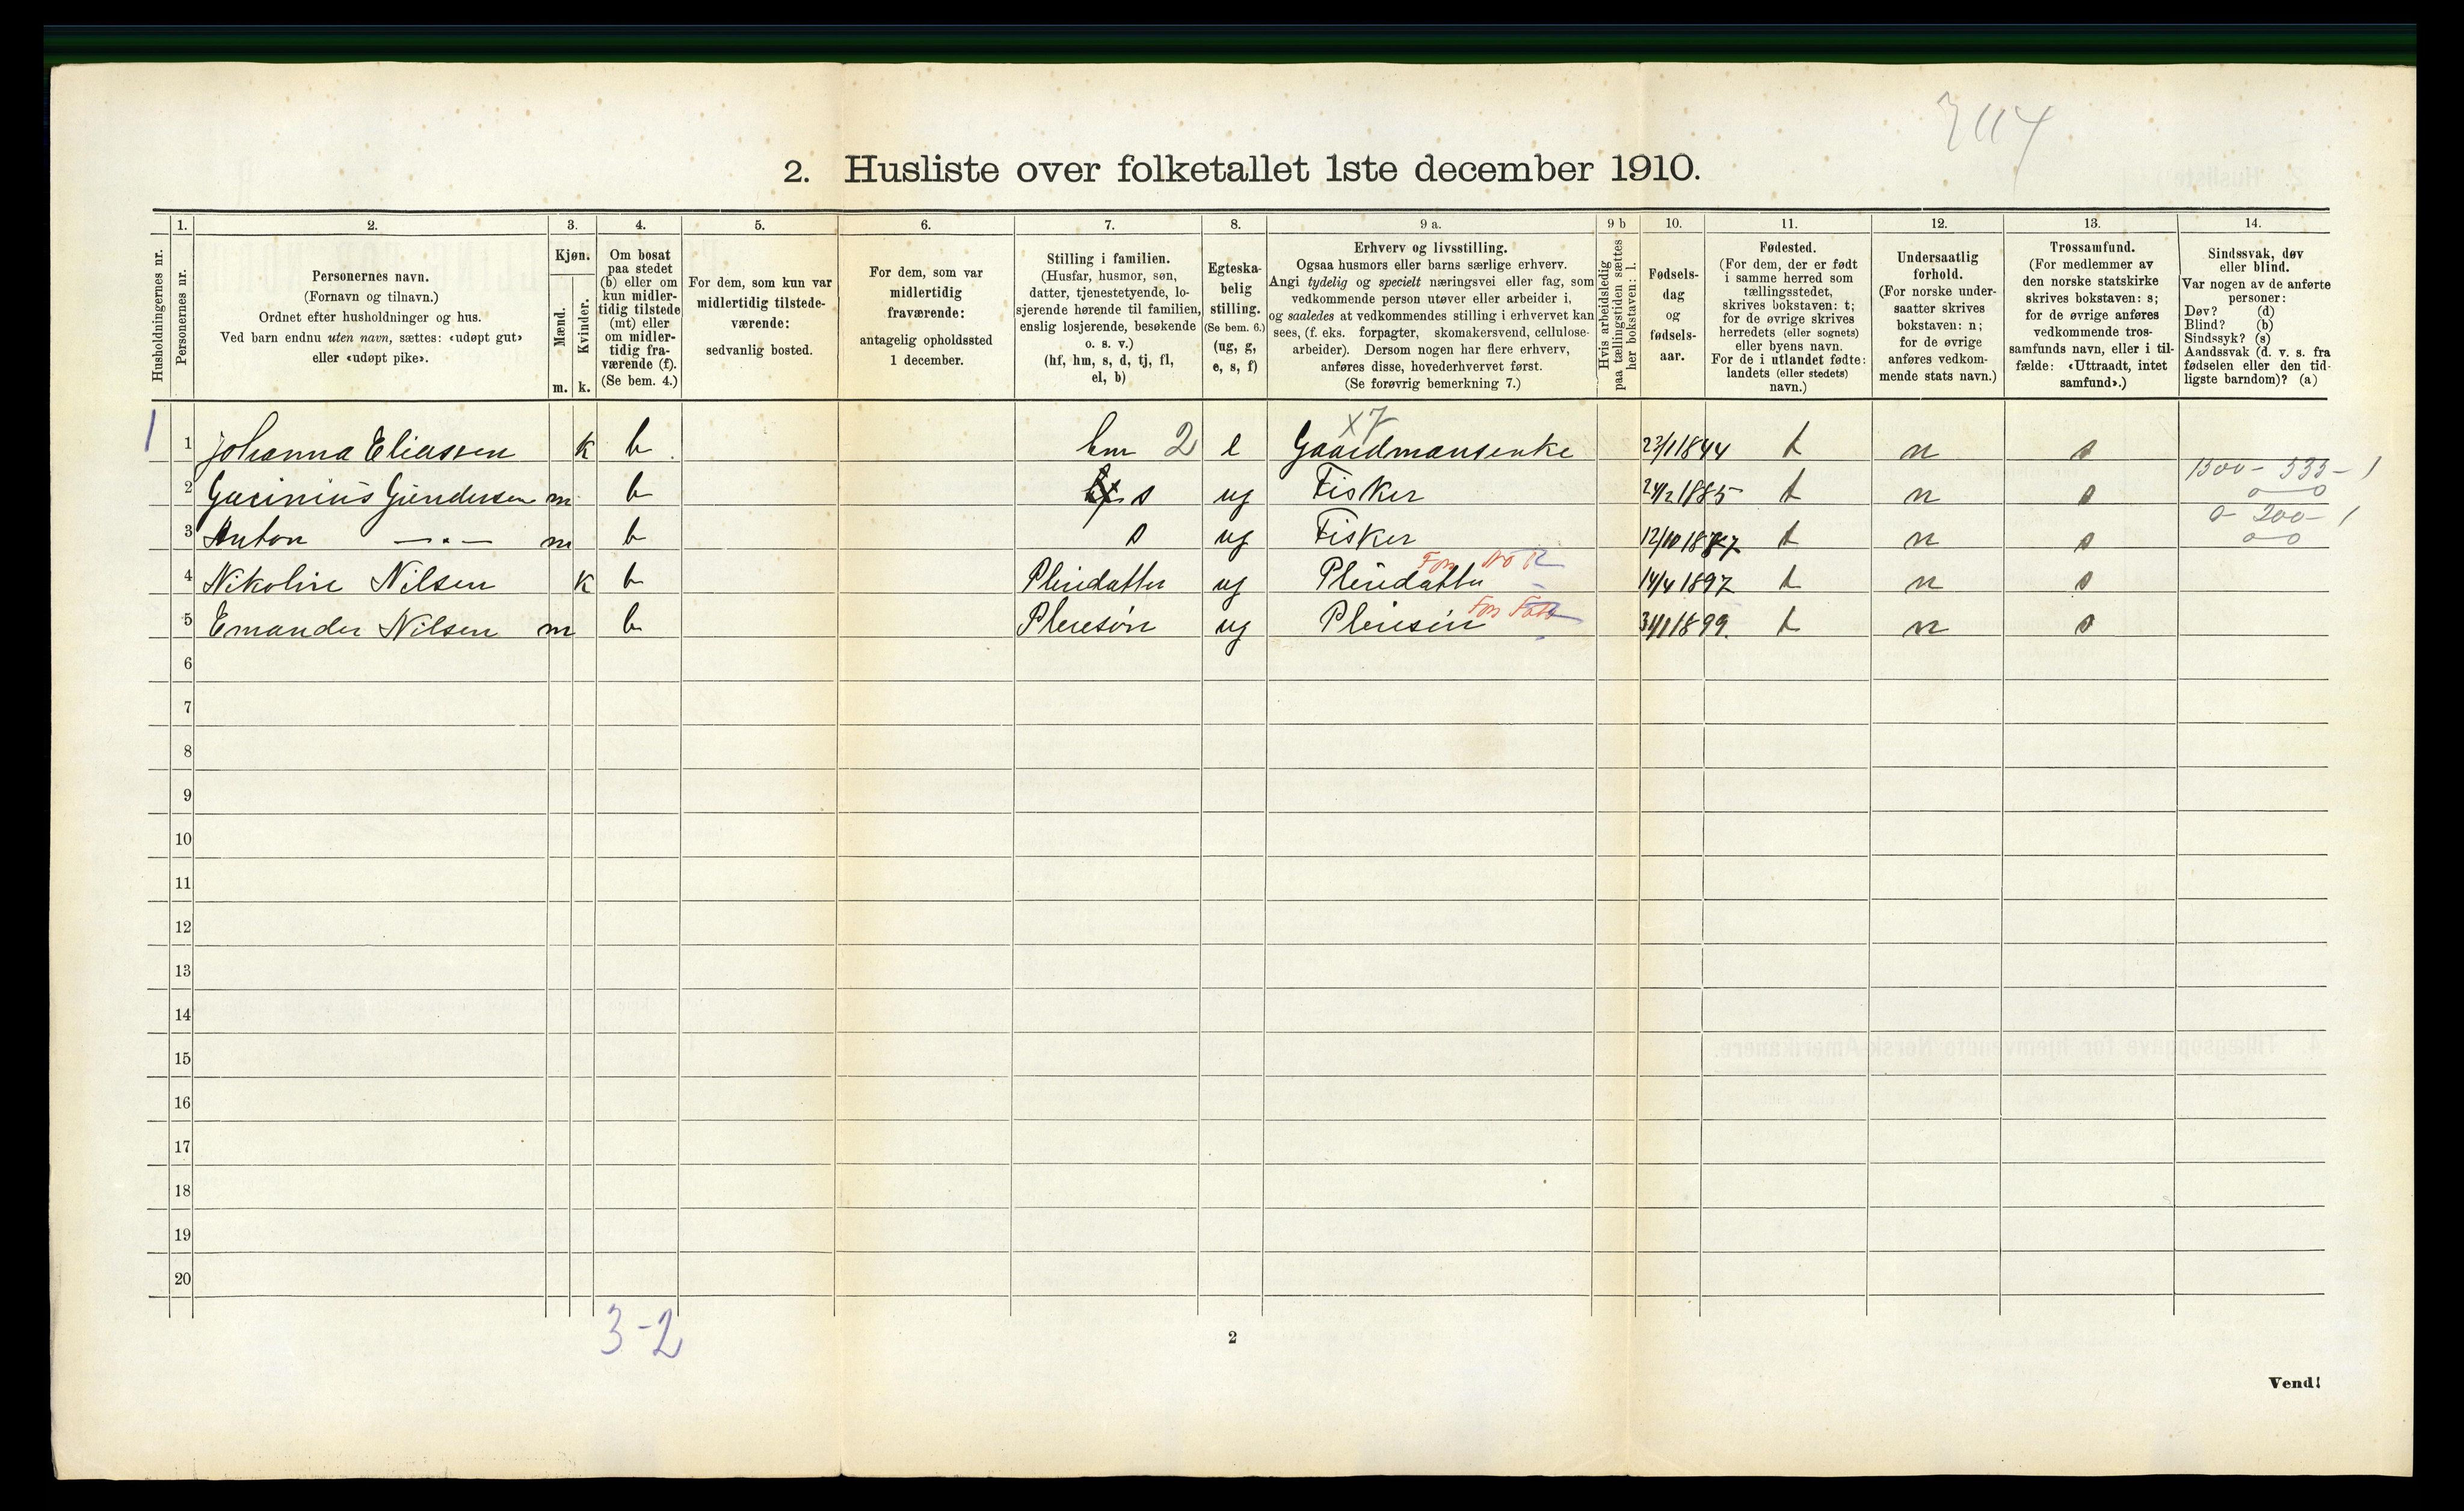 2. Husliste over folketallet 1ste december 1910.
1. 2. 3. 4. 5. 6. 7. 8. 9 a. 9 b 10. 11. 12. 13. 14.
Husholdningernes nr.
Personernes nr.
Personernes navn.
(Fornavn og tilnavn.)
Ordnet efter husholdninger og hus.
Ved barn endnu uten navn, sættes: «udøpt gut»
eller «udøpt pike».
Kjøn.
Mænd.
Kvinder.
m. k.
Om bosat
paa stedet
(b) eller om
kun midler-
tidig tilstede
(mt) eller
om midler-
tidig fra-
værende (f).
(Se bem. 4.)
For dem, som kun var
midlertidig tilstede-
værende:
sedvanlig bosted.
For dem, som var
midlertidig
fraværende:
antagelig opholdssted
1 december.
Stilling i familien.
(Husfar, husmor, søn,
datter, tjenestetyende, lo-
sjerende hørende til familien,
enslig losjerende, besøkende
o. s. v.)
(hf, hm, s, d, tj, fl,
el, b)
Egteska-
belig
stilling.
(Se bem. 6.)
(ug, g,
e, s, f)
Erhverv og livsstilling.
Ogsaa husmors eller barns særlige erhverv.
Angi tydelig og specielt næringsvei eller fag, som
vedkommende person utøver eller arbeider i,
og saaledes at vedkommendes stilling i erhvervet kan
sees, (f. eks. forpagter, skomakersvend, cellulose-
arbeider). Dersom nogen har flere erhverv,
anføres disse, hovederhvervet først.
(Se forøvrig bemerkning 7.)
Hvis arbeidsledig
paa tællingstiden sættes
her bokstaven: l.
Fødsels-
dag
og
fødsels-
aar.
Fødested.
(For dem, der er født
i samme herred som
tællingsstedet,
skrives bokstaven: t;
for de øvrige skrives
herredets (eller sognets)
eller byens navn.
For de i utlandet fødte:
landets (eller stedets)
navn.)
Undersaatlig
forhold.
(For norske under-
saatter skrives
bokstaven: n;
for de øvrige
anføres vedkom-
mende stats navn.)
Trossamfund.
(For medlemmer av
den norske statskirke
skrives bokstaven: s;
for de øvrige anføres
vedkommende tros-
samfunds navn, eller i til-
fælde: «Uttraadt, intet
samfund».)
Sindssvak, døv
eller blind.
Var nogen av de anførte
personer:
Døv? (d)
Blind? (b)
Sindssyk? (s)
Aandssvak (d. v. s. fra
fødselen eller den tid-
ligste barndom)? (a)
x7
1 1 Johanna Eliassen k b hm 2 e Gaardmansenke 23/1 1844 t n s
1300- 535- 1
2 Gundersen m b s ug Fisker 24/2 1885 t n s 0 0
0 200- 1
3 Anton —"— m b s ug Fisker 12/10 1887 t n s 0 0
4 Nikoline Nilsen k b Pleiedatter ug Pleiedatter 14/4 1897 t n s
5 Emander Nilsen m b Pleiesøn ug Pleiesøn 31/1 1899. t n s
6
7
8
9
10
11
12
13
14
15
16
17
18
19
20
3-2
2
Vend!